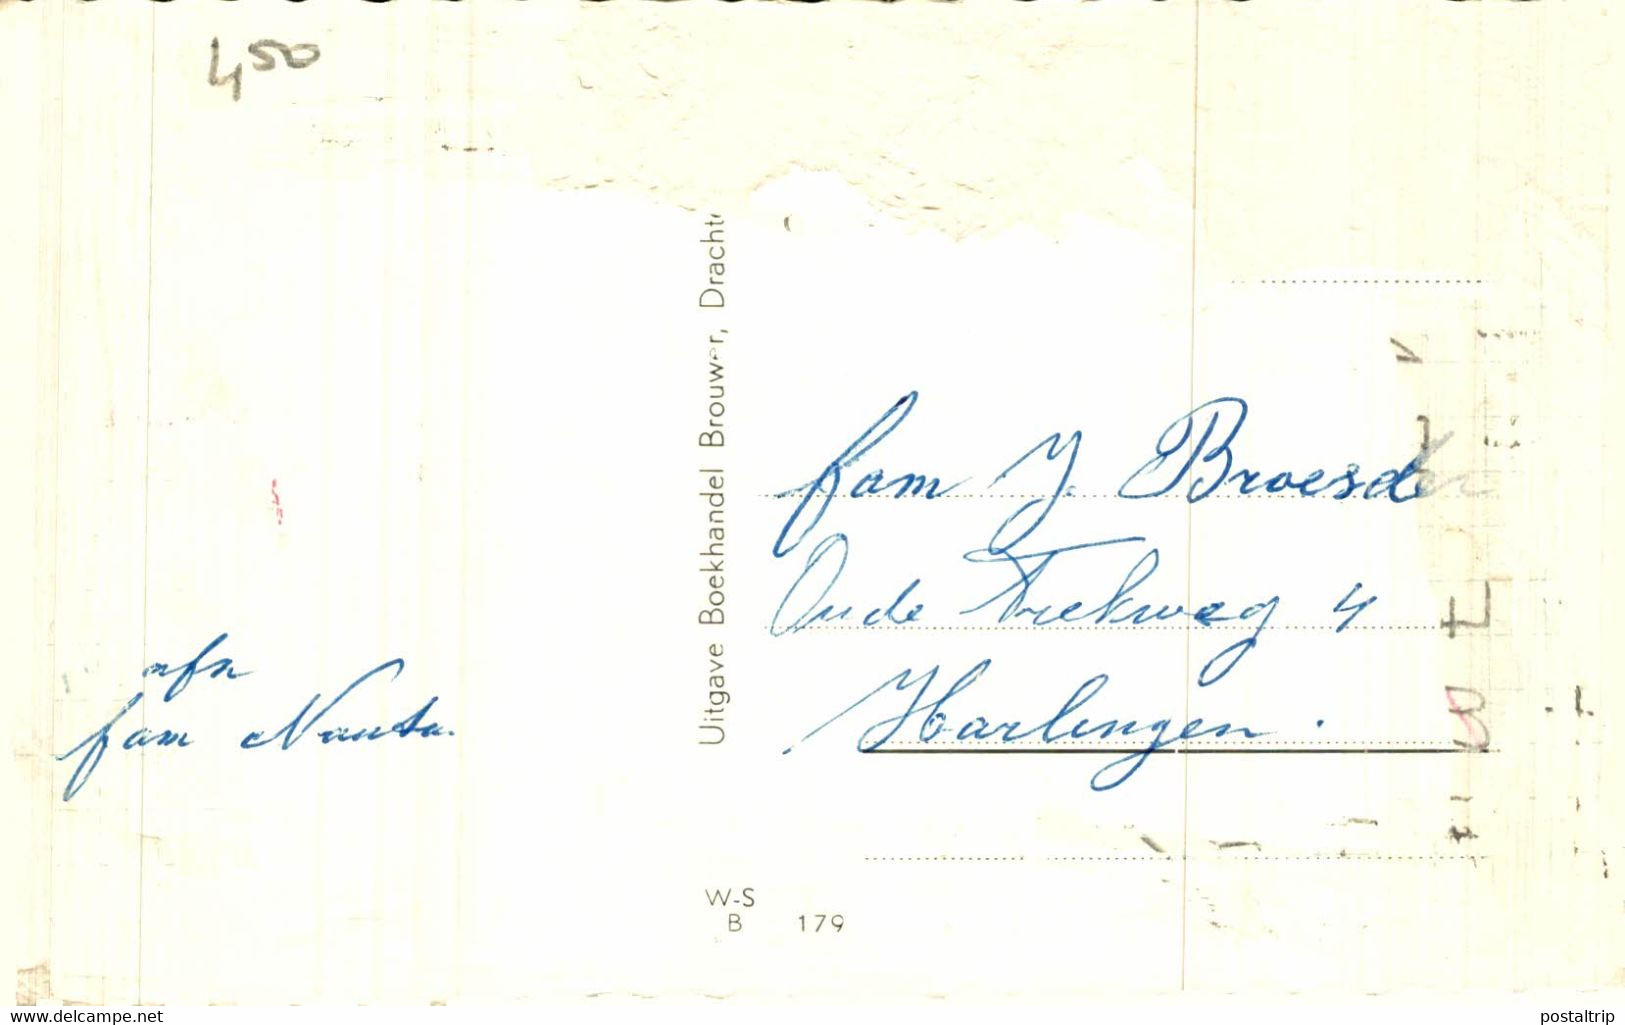 4 50
afz
fam Nauta.
Uitgave Boekhandel Brouwer, Dracht
fam J. Broesder
Oude Trekweg 4
Harlingen.
W-S
B 179
www.delcampe.net
postaltrip